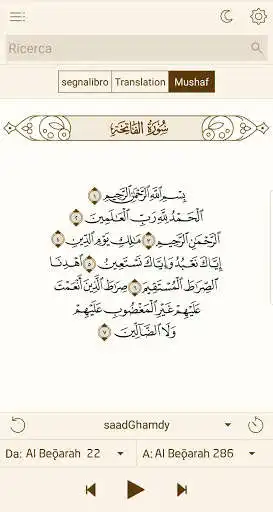 Ricerca
segnalibro Translation Mushaf
سُورَةُ الْفَاتِحَةِ
بِسْمِ اللَّهِ الرَّحْمَٰنِ الرَّحِيمِ ١
الْحَمْدُ لِلَّهِ رَبِّ الْعَالَمِينَ ٢
الرَّحْمَٰنِ الرَّحِيمِ ٣ مَالِكِ يَوْمِ الدِّينِ ٤
إِيَّاكَ نَعْبُدُ وَإِيَّاكَ نَسْتَعِينُ ٥ اهْدِنَا
الصِّرَاطَ الْمُسْتَقِيمَ ٦ صِرَاطَ الَّذِينَ أَنْعَمْتَ
عَلَيْهِمْ غَيْرِ الْمَغْضُوبِ عَلَيْهِمْ
وَلَا الضَّالِّينَ ٧
saadGhamdy
Da: Al Beqarah 22 A: Al Beqarah 286